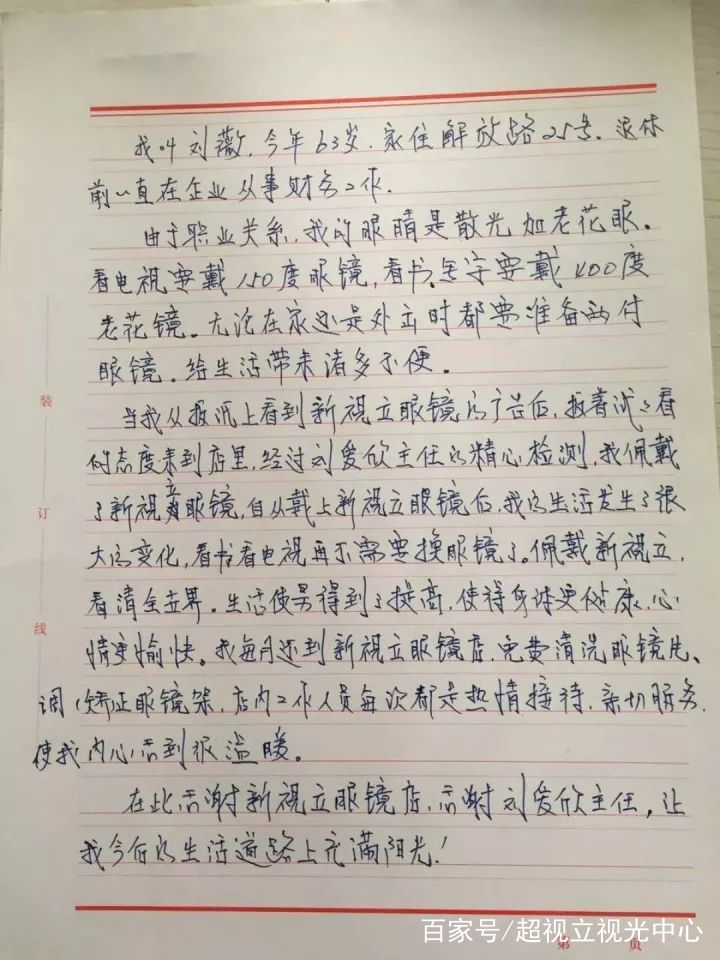 我叫刘薇,今年63岁.家住解放路25号。退休
前一直在企业从事财务工作.
由于职业关系,我的眼睛是散光加老花眼。
看电视要戴150度眼镜,看书、写字要戴400度
老花镜。无论在家还是外出时都要准备两付
眼镜。给生活带来诸多不便。
当我从报纸上看到新视立眼镜的广告后,报着试试看
的态度来到店里,经过刘爱欣主任的精心检测,我佩戴
了新视立眼镜,自从戴上新视立眼镜后,我的生活发生了很
大的变化,看书看电视再不需要换眼镜了。佩戴新视立,
看清全世界。生活质量得到了提高,使得身体更健康,心
情更愉快。我每月还到新视立眼镜店,免费清洗眼镜片、
调(矫)正眼镜架,店内工作人员每次都是热情接待,亲切服务,
使我内心感到很温暖。
在此感谢新视立眼镜店,感谢刘爱欣主任,让
我今后的生活道路上充满阳光!
装
订
线
第 页
百家号/超视立视光中心